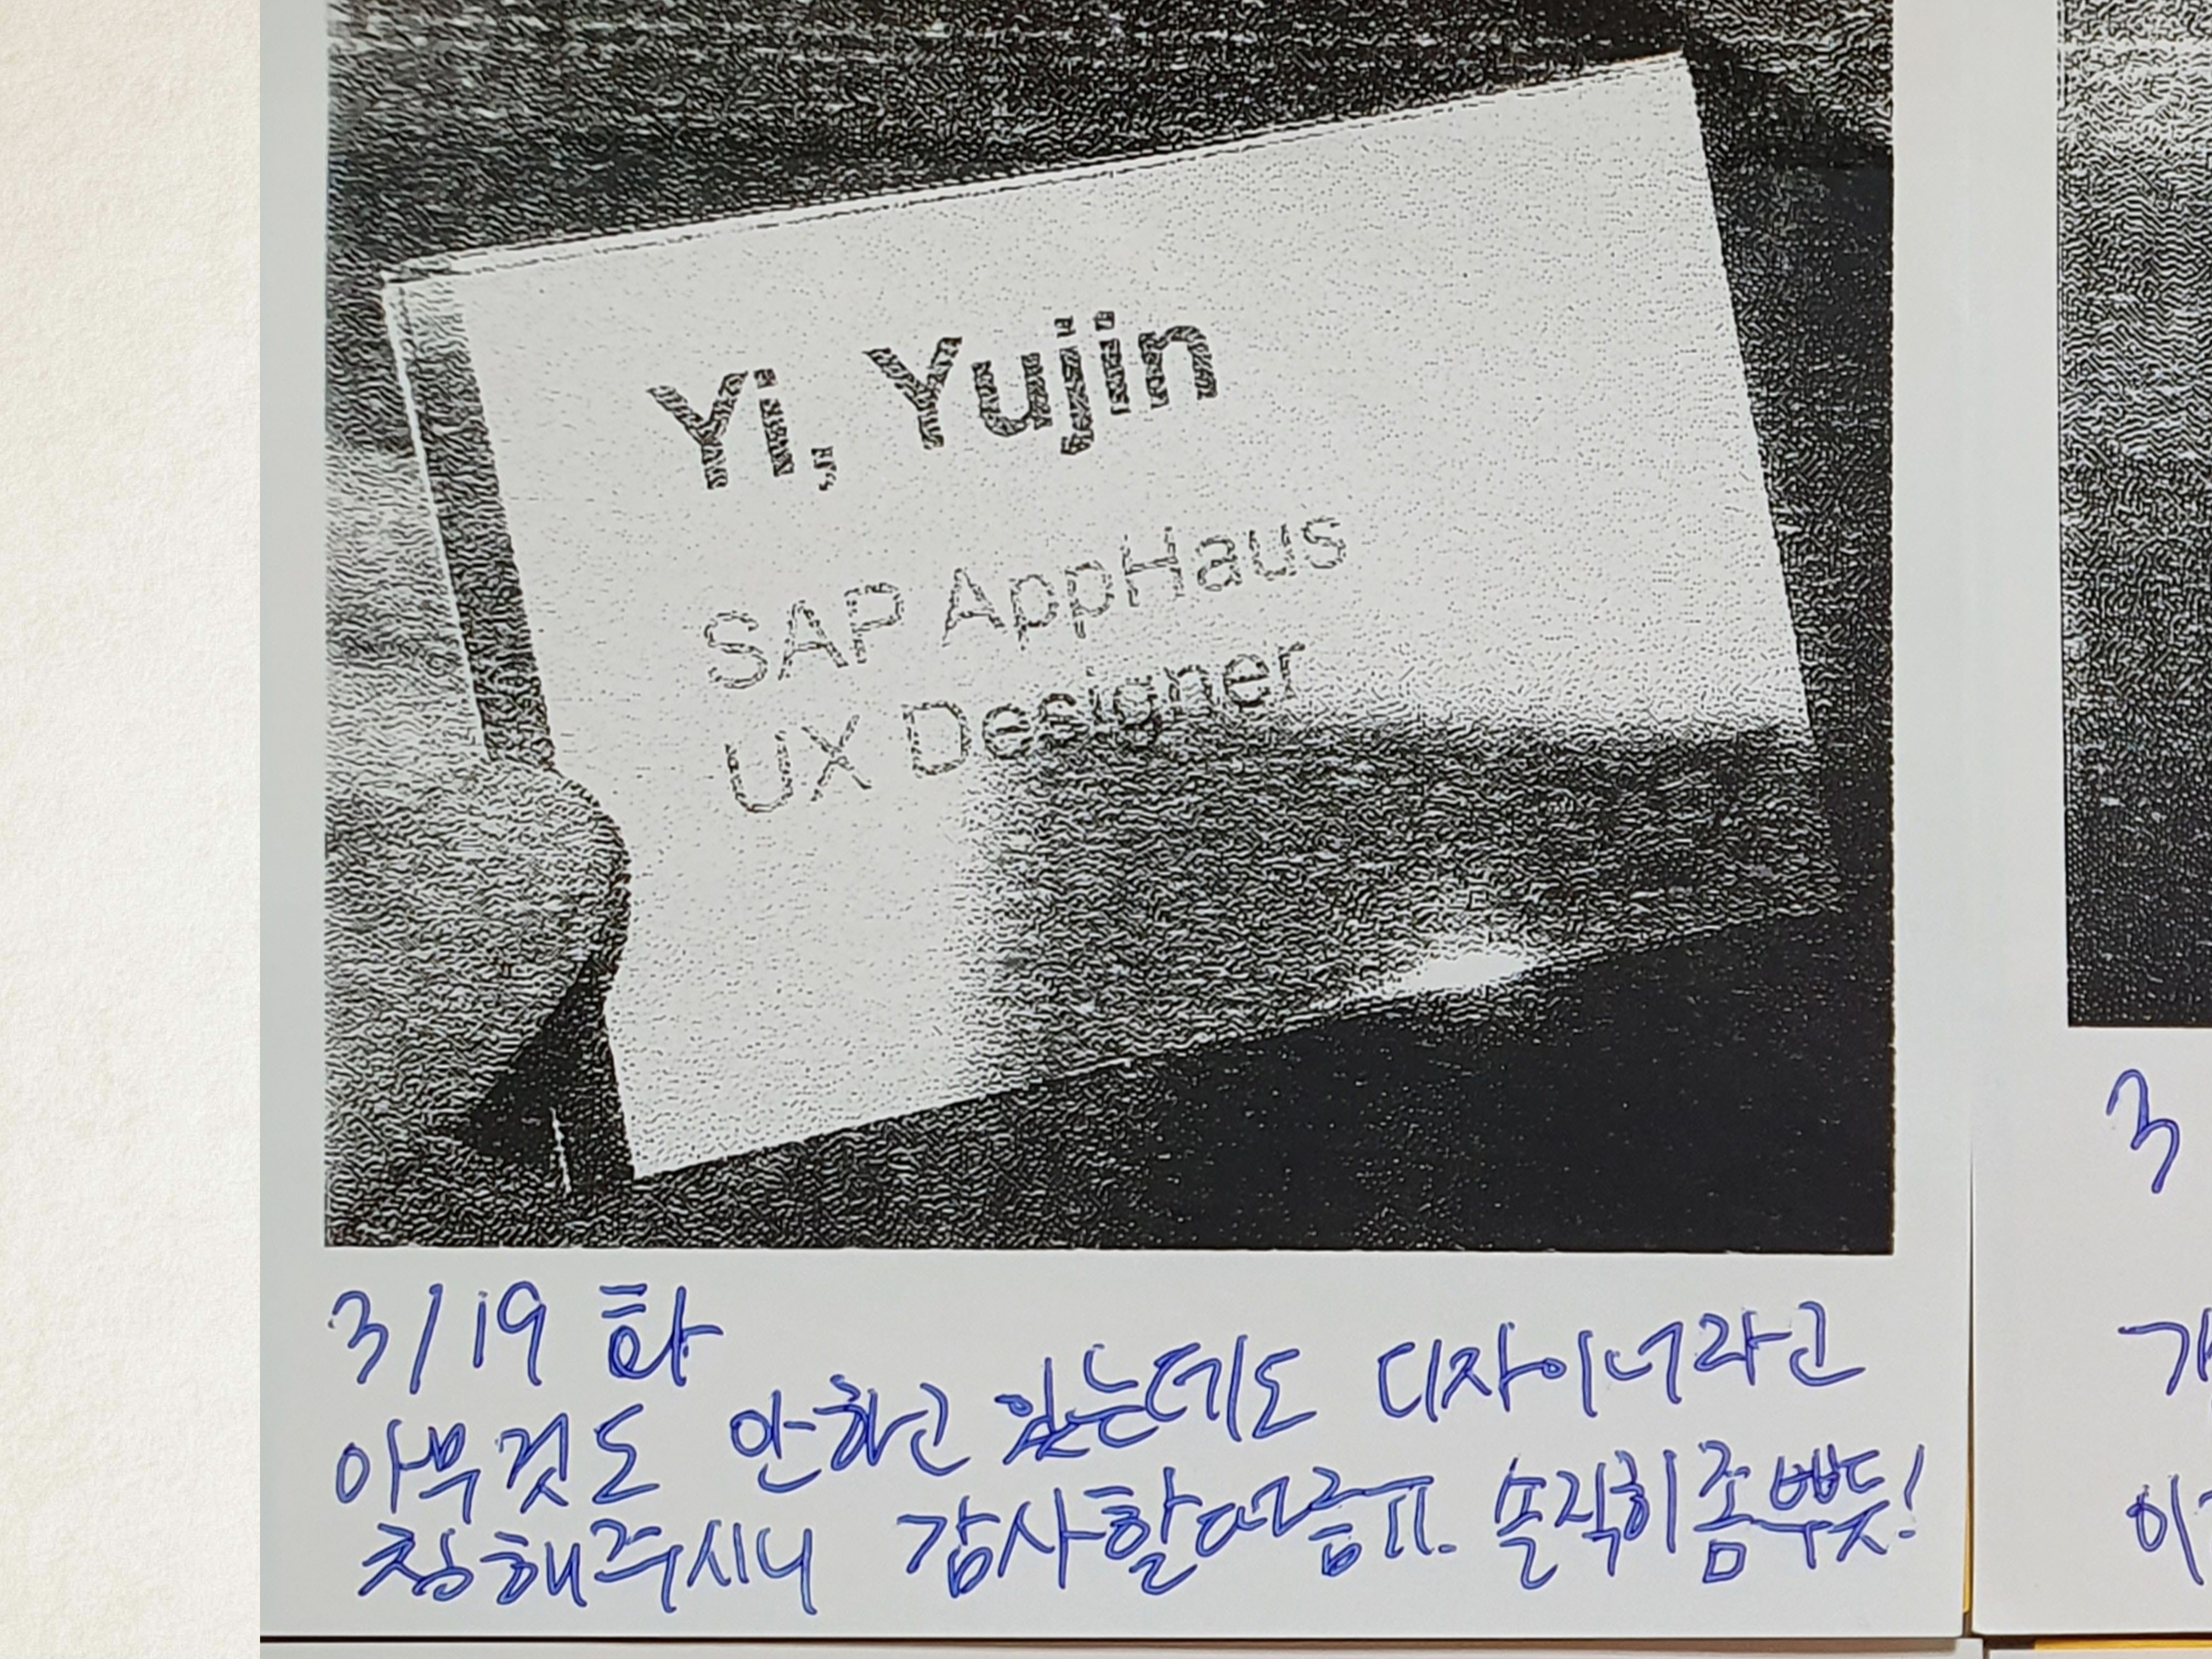 Yi, Yujin
SAP AppHaus
UX Designer
3/19 화
아무것도 안하고 있는데도 디자이너라고
칭해주시니 감사할따름ㅠ. 솔직히 좀 뿌듯!
3